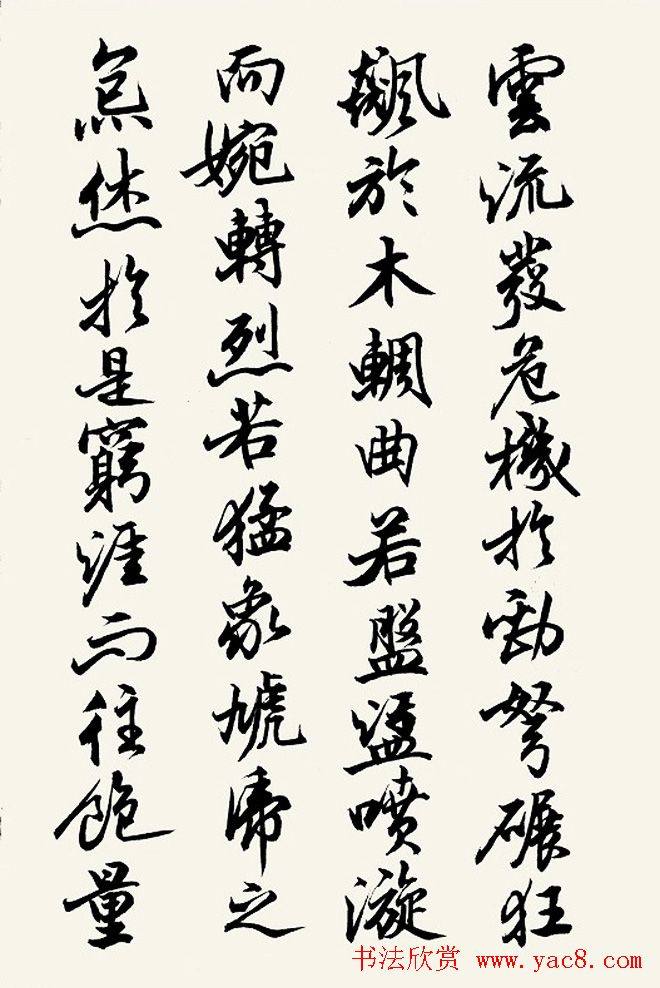 雲流發危機於勁弩碾狂
飆於木輞曲若盤盪噴漩
而婉轉烈若猛象虓虎之
炰烋於是窮涯而往飽量
书法欣赏 www.yac8.com